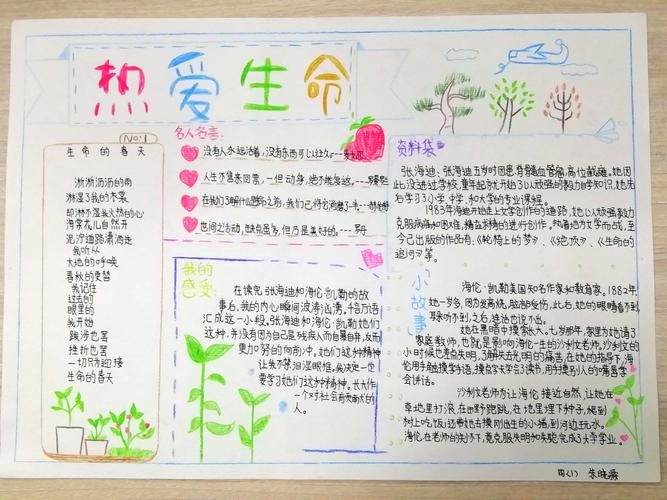 热爱生命
No:1
生命的春天
淅淅沥沥的雨
淋湿了我的衣裳
却淋不湿我火热的心
海棠花自然开
泥泞道路潇洒走
我听从
大地的呼唤
春秋的变替
我记住
过去的
眼里的
我开始
跋涉也罢
挫折也罢
一切只为迎接
生命的春天
名人名言:
没有人永远活着,没有东西可以经久
人生不售来回票,一但动身,绝不能复返。
在我们了解什么是生命之前,我们已将它消磨了一半
世间之活动,缺点虽多,但乃是美好的。
我的
感受:
在读完张海迪和海伦·凯勒的故
事后,我的内心瞬间波涛汹涌,千言万语
汇成这一小段,张海迪和海伦·凯勒她们
这种,并没有因为自己是残疾人而自暴自弃,反而
更加努的向前冲。她们这种精神
让我不禁泪湿眼眶,我决定一定
要学习她们这种精神。长大作
一个对社会有贡献大的
人。
资料袋
张海迪:张海迪五岁时因患脊髓血管瘤,高位截瘫,她因
此没进过学校,童年起就开始以顽强的毅力自学知识,她先
后学习了小学、中学、和大学的专业课程。
1983年海迪开始走上文学创作的道路,她以顽强毅力
克服病痛和困难,精益求精的进行创作,执着地为文学而战,至
今已出版的作品有:《轮椅上的梦》、《绝顶》、《生命的
追问》等。
小故事
海伦·凯勒美国知名作家和教育家,1882年,
她一岁多,因为发高烧,脑部受伤,此后,她的眼睛看不到,
耳听不到,之后,连话也说不出。
她在黑暗中摸索长大。七岁那年,家里为她请了
家庭教师,也就是影响海伦一生的沙利文老师,沙利文的
小时候也差点失明,了解失去光明的痛苦,在她的指导下,海
伦用手触摸学手语,摸点字学会了读书,用手摸别人的嘴唇学
会讲话。
沙利文老师为让海伦接近自然,让她在
草地里打滚,在田野跑跳,在地里埋下种子,爬到
树上吃饭;还带她去摸刚出生的小猪,到河边玩水。
海伦,在老师的关怀下,竟克服失明和失聪,完成了大学学业。
四(1) 朱晓